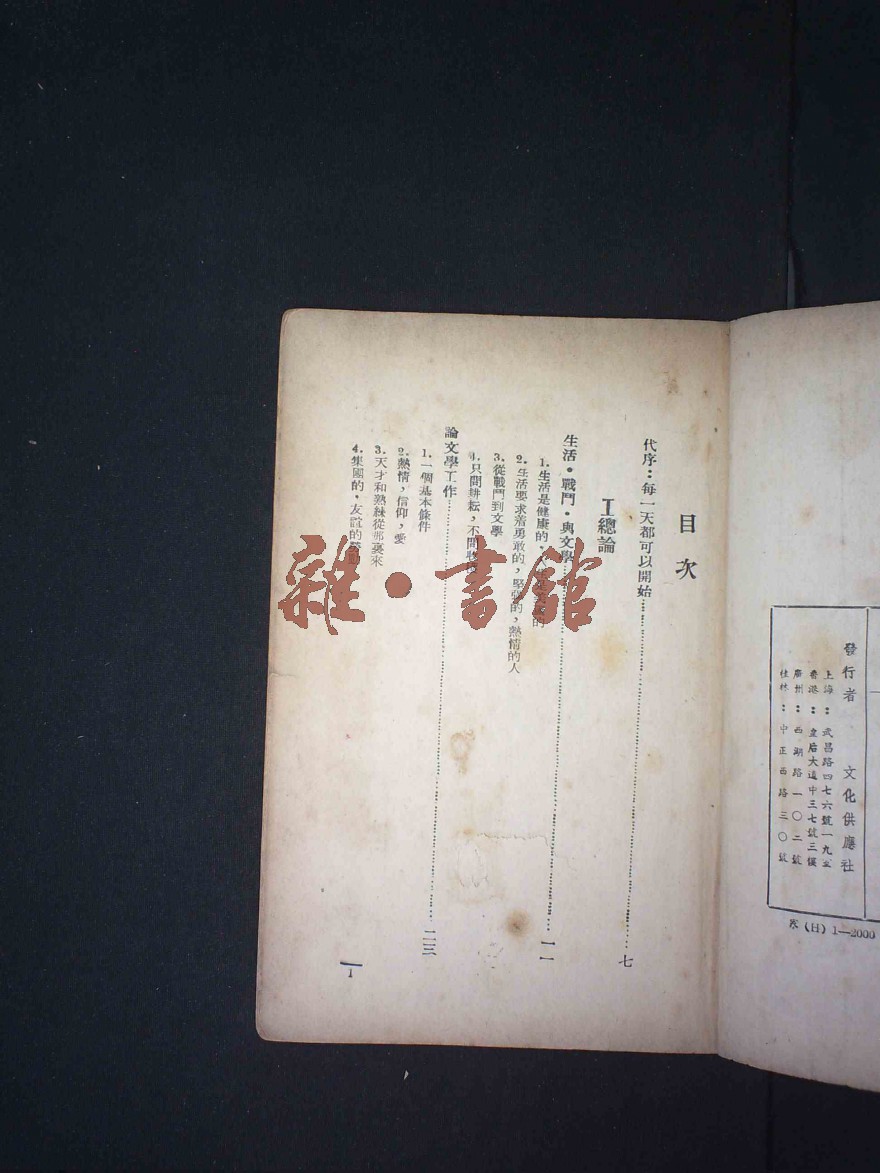 發行者 文化供應社
上海：武昌路四七六號一九室
香港：皇后大道中三七號三樓
廣州：西湖路一〇二號
桂林：中正西路三〇號
(日) 1—2000
目次
代序：每一天都可以開始……七
I 總論
生活・戰鬥・與文學……一一
1.生活是健康的，的
2.生活要求着勇敢的，堅強的，熱情的人
3.從戰鬥到文學
4.只問耕耘，不問
論文學工作……二三
1.一個基本條件
2.熱情，信仰，愛
3.天才和熟練從那裏來
4.集團的，友誼的
1
雜・書館